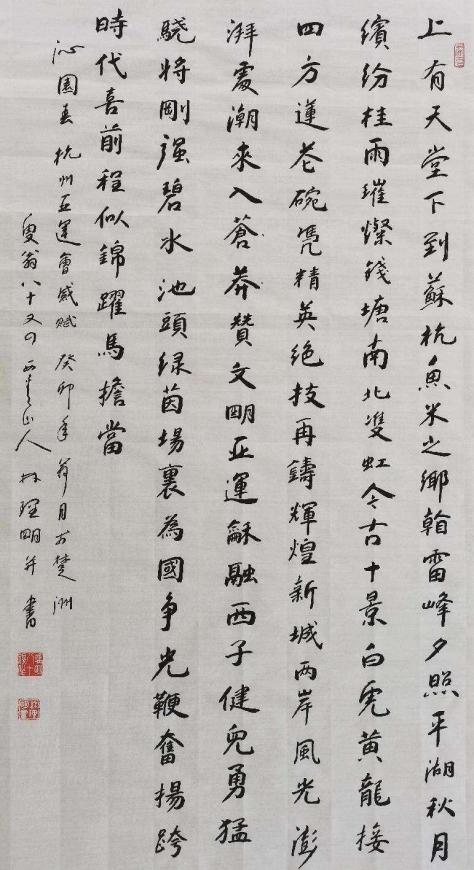 上有天堂下到蘇杭魚米之鄉翰雷峰夕照平湖秋月
繽紛桂雨璀燦錢塘南北雙虹今古十景白虎黃龍接
四方蓮花碗凭精英絕技再鑄輝煌新城兩岸風光澎
湃處潮來入蒼莽贊文明亞運龢融西子健兒勇猛
驍將剛强碧水池頭緑茵場裏為國争光鞭奮揚跨
時代喜前程似錦躍馬擔當
沁園春杭州亞運會感賦癸卯年 月於楚洲
叟翁八十又四 山人林理明并書